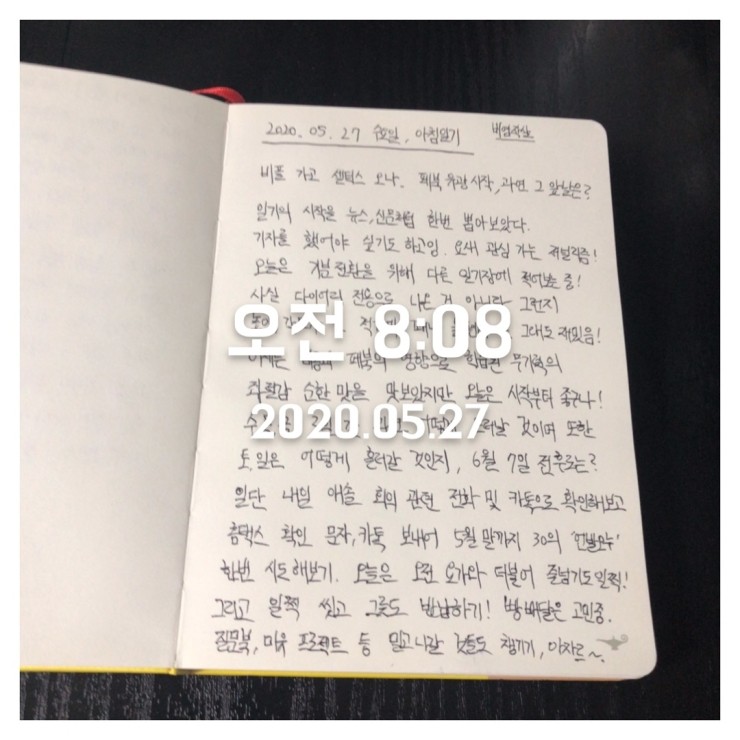 2020. 05. 27 수요일, 아침일기
비폴 가고 센터스 오나. 페북 유광시작, 과연 그 앞날은?
일기의 시작을 뉴스, 신문처럼 한번 뽑아보았다.
기자를 했어야 싶기도 하고잉. 요새 관심 가는 저널리즘!
오늘은 기분전환을 위해 다른 일기장에 적어보는 중!
사실 다이어리 전용으로 나온 건 아니라 그런지
오전 8:08
그래도 재밌음!
페북의 영향으로 무기력의
좌절감 순한 맛을 맛보았지만 오늘은 시작부터 좋구나!
2020.05.27
것이며 또한
토,일은 어떻게 흘러갈 것인지, 6월 7일 전후로는?
일단 내일 애솔 회의 관련 전화 및 카톡으로 확인해보고
홈택스 확인 문자, 카톡 보내어 5월 말까지 30의
한번 시도해보기. 오늘은 오전 요가와 더불어 줄넘기도 일찍!
그리고 일찍 씻고 그릇도 반납하기! 빵 배달은 고민중.
질문북, 미유 프로젝트 등 밀고나갈 것들도 챙기기, 아자르~